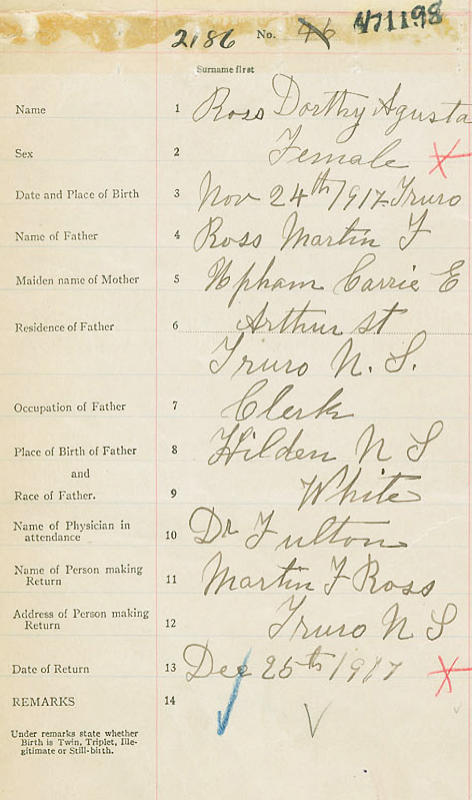 2186 No. 46 471198
Surname first
Name 1 Ross Dorthy Agusta
Sex 2 Female
Date and Place of Birth 3 Nov 24th 1917 Truro
Name of Father 4 Ross Martin F
Maiden name of Mother 5 Upham Carrie E
Residence of Father 6 Arthur st
Truro N. S.
Occupation of Father 7 Clerk
Place of Birth of Father 8 Hilden N S
and
Race of Father. 9 White
Name of Physician in
attendance 10 Dr Fulton
Name of Person making
Return 11 Martin F Ross
Address of Person making
Return 12 Truro N S
Date of Return 13 Dec 25th 1917
REMARKS 14
Under remarks state whether
Birth is Twin, Triplet, Ille-
gitimate or Still-birth.